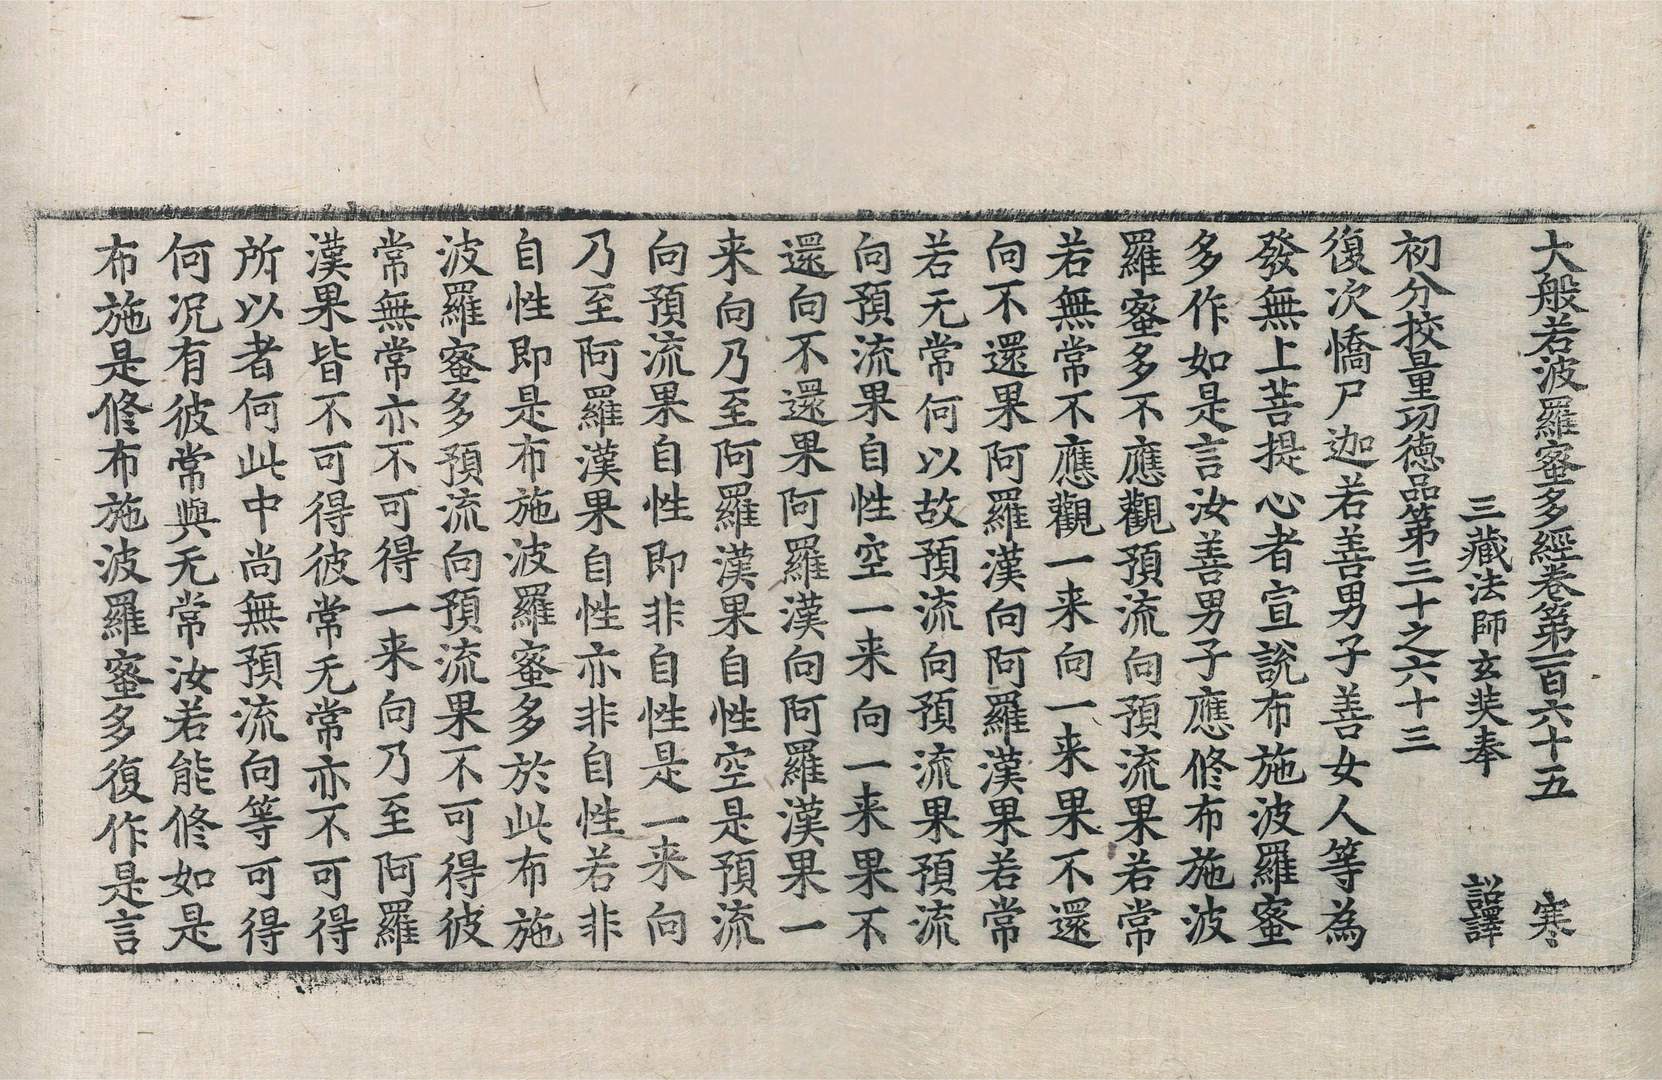 大般若波羅蜜多經卷第一百六十五 寒
三藏法師玄奘奉 詔譯
初分挍量功德品第三十之六十三
復次憍尸迦若善男子善女人等為
發無上菩提心者宣說布施波羅蜜
多作如是言汝善男子應修布施波
羅蜜多不應觀預流向預流果若常
若無常不應觀一来向一来果不還
向不還果阿羅漢向阿羅漢果若常
若无常何以故預流向預流果預流
向預流果自性空一来向一来果不
還向不還果阿羅漢向阿羅漢果一
来向乃至阿羅漢果自性空是預流
向預流果自性即非自性是一来向
乃至阿羅漢果自性亦非自性若非
自性即是布施波羅蜜多於此布施
波羅蜜多預流向預流果不可得彼
常無常亦不可得一来向乃至阿羅
漢果皆不可得彼常无常亦不可得
所以者何此中尚無預流向等可得
何况有彼常與无常汝若能修如是
布施是修布施波羅蜜多復作是言